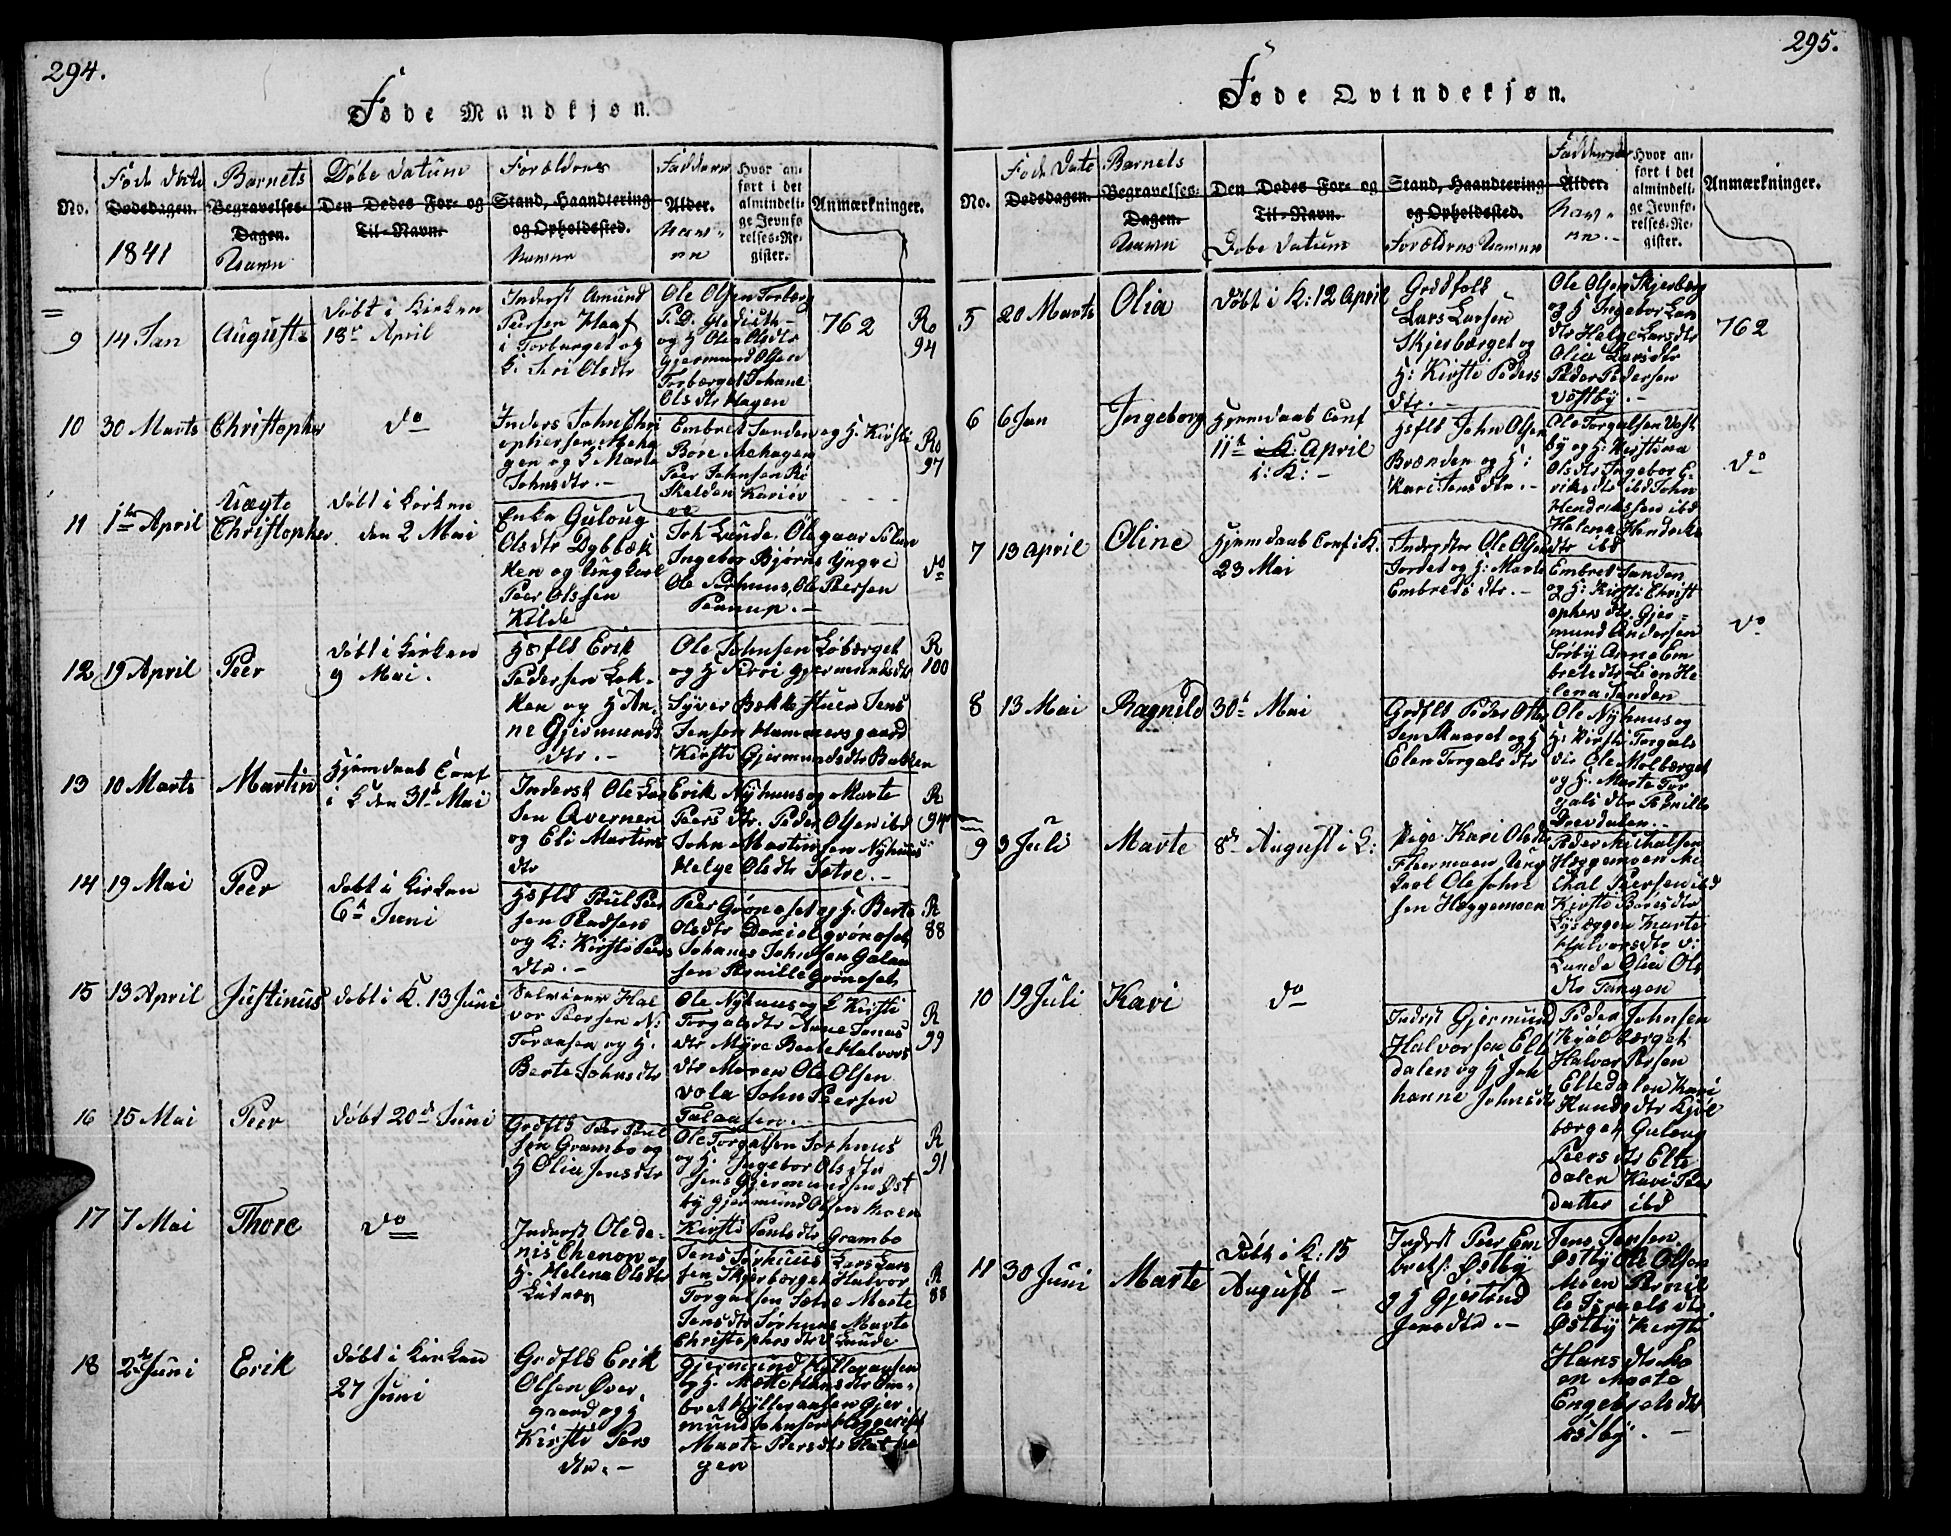 294.
Føde Mandkjøn.
Føde Date
Dødsdagen.
1841
Barnets
Begravelses-
Dagen.
Navn
Døbe Datum
Den Dødes For- og
Til-Navn.
Forældres
Stand, Haandtering
og Opholdssted.
Navne
Faddernes
Alder.
Navne
Hvor an-
ført i det
almindeli-
ge Jevnfø-
relses-Re-
gister.
Anmærkninger.
No.
9 14 Jan Auguste
Døbt i Kirken
18de April
Inderst Amund
Persen Haaf
i Torberget og
Ole Olsen Torberg
og H Olia Olsdtr
Gjermund Olsen
Torberget Johane
Olsdtr Hagen
762
Ro
94
10 30 Marts Christopher do
Inders John Chri
ophersen Meha
gen og H Marte
Johnsdtr.-
Embret Sanden og H: Kirsti
Børe Mehagen
Peer Johnsen Ri
Ro
97
11 1te April
Uægte
Christopher
Døbt i Kirken
den 2 Mai
Enke Guloug
Olsdtr Dybbæk
ken og Ungkarl
Peer Olssen
Kilde
Joh Lunde, Ole
Ingebor Bjørns Yngve
Ole Nyhuus, Ole Peersen
do
12 19 April Peer
Døbt i Kirken
9 Mai.
Hsfls Erik
Pedersen Løk-
ken og H An-
ne Gjermunds
dtr.-
Ole Johnsen Løberget
og H Siri Gjermundsdtr
Syver Bækkestuen Jens
Jensen Hammersgaard
Kirsti Gjermundsdtr Bakken
R
100
13 10 Marts Martin
Hjemdaab Conf
i K den 31te Mai
Inderst Ole Lar
sen Qvernen
og Eli Martins
dtr
Erik Nyhuus og Marte
Peers dtr. Peder Olsen ibd
John Martinsen Nyhuus
Helge Olsdtr Sætre.-
R
94
14 19 Mai Peer
Døbt i Kirken
6te Juni
Hsfls Poul Peer
sen Pladsen
og K: Kirsti Peers
dtr.-
Peer Grønoset og H. Berte
Olsdtr Daniel Grønoset
Johanes Johnsen Galaa
sen Pernille Grønoset
R
88
15 13 April Justinus døbt i K. 13 Juni
Selveier Hal
vor Peersen N:
Toraasen og H.
Berte Johnsdtr
Ole Nyhuus og H Kirsti
Torgalsdtr Anne Jonas
dtr Myre Beate Halvors
dtr Moren Ole Olsen
vola John Peersen
Galaasen.
R
99
16 15 Mai Peer Døbt 20de Juni
Grdfls Peer Poul
sen Grambo og
H Olia Jensdtr
Ole Torgalsen Sørhuus
og H. Ingebor Olsdtr
Jens Gjermundsen Øst
by Gjermund Olsen Moen
Kirsti Poulsdtr Grambo
R
91
17 7 Mai Thore do
Inderst Ole De-
nis Chenon og
H. Helena Olsdtr
Lutnæs
Jens Sørhuus Lars Lars
sen Skjerberget Halvor
Torgalsen Sætre Marte
Jensdtr Sørhuus Marte
Christophersdtr V Lunde
R
88
18 2de Juni Erik
Døbt i Kirken
27 Juni
Grdfls Erik
Olsen Øver-
gaard og H
Kirsti Pers
dtr.-
Gjermund Hylleraasen
og H. Mette Hansdtr Em-
bret Hylleraasen Gjer
mund Johnsen Heggeriset
Marte Peersdtr
gen
295.
Føde Qvindekjøn.
No.
Føde Date
Dødsdagen.
Barnets
Begravelses-
Dagen.
Navn
Den Dødes For- og
Til-Navn.
Døbe Datum
Stand, Haandtering
og Opholdssted.
Forældres Navne
Faddernes
Alder.
Nav-
ne.-
Hvor an-
ført i det
almindeli-
ge Jevnfø-
relses-Re-
gister.
Anmærkninger.
5 20 Marts Olia Døbt i K: 12 April
Grdfolk
Lars Larsen
Skjerberget og
H: Kirsti Peders
dtr.-
Ole Olsen Skjerberg
og H Ingebor Lars
dtr Helge Larsdtr
Olia Larsdtr
Peder Pedersen
Vestby.-
762
6 6 Jan Ingeborg
Hjemdaab Conf
11te i K April
i K:-
Hsfls John Olsen
Brænden og H:
Kari Jensdtr.-
Ole Torgalsen Vest
by og H: Kirstina
Olsdtr Ingebor E-
riksdtr ibd John
Hendriksen ibd
Helena Hendriks
dtr ibd
do
7 13 April Oline
Hjemdaab Conf i K.
23 Mai
Inderster Ole Olsen
Jordet og H: Marte
Embretsdtr.-
Embret Sanden
og H: Kirsti Christ
ophersdtr Gjer-
mund Andersen
Sørby Anne Em
bretsdtr Lien He
lena Sanden
do
8 13 Mai Ragnild 30te Mai
Grdfls Peder Otter
sen Skaaret og H
Elen Torgalsdtr
Ole Nyhuus og
H: Kirsti Torgals
dtr Ole Molberget
og H. Marte Tor
galsdtr Pernille
Drevdalen.-
9 3 Juli Marte 8de August i K:
Pige Kari Olsdtr
Flermoen Ung
karl Ole John
sen Heggemoen
Peder Michalsen
Heggemoen Mi
chal Peersen ibd
Kirsti Børesdtr
Lysæggen Marte
Halvorsdtr V:
Lunde Olia Ols
dtr Tangen
10 19 Juli Kari do
Inderst Gjermund
Halvorsen Elt
dalen og H Joh
hanne Johnsdtr
Peder Johnsen
Kjølberget
Halvor Persen
Eltedalen Kari
Knudsdtr Kjøl
berget Guloug
Peersdtr Elte
dalen Kari Peer
datter ibd
11 30 Juni Marte
Døbt i K: 15
August -
Inderst Peer Em
brets: Østby
og H Gjertrud
Jensdtr.-
Jens Jensen
Østby Ole Olsen
Moen Pernil
le Israelsdtr
Østby Kirsti
Hansdtr Mo
en Marte
Engebretsdtr
Østby.-